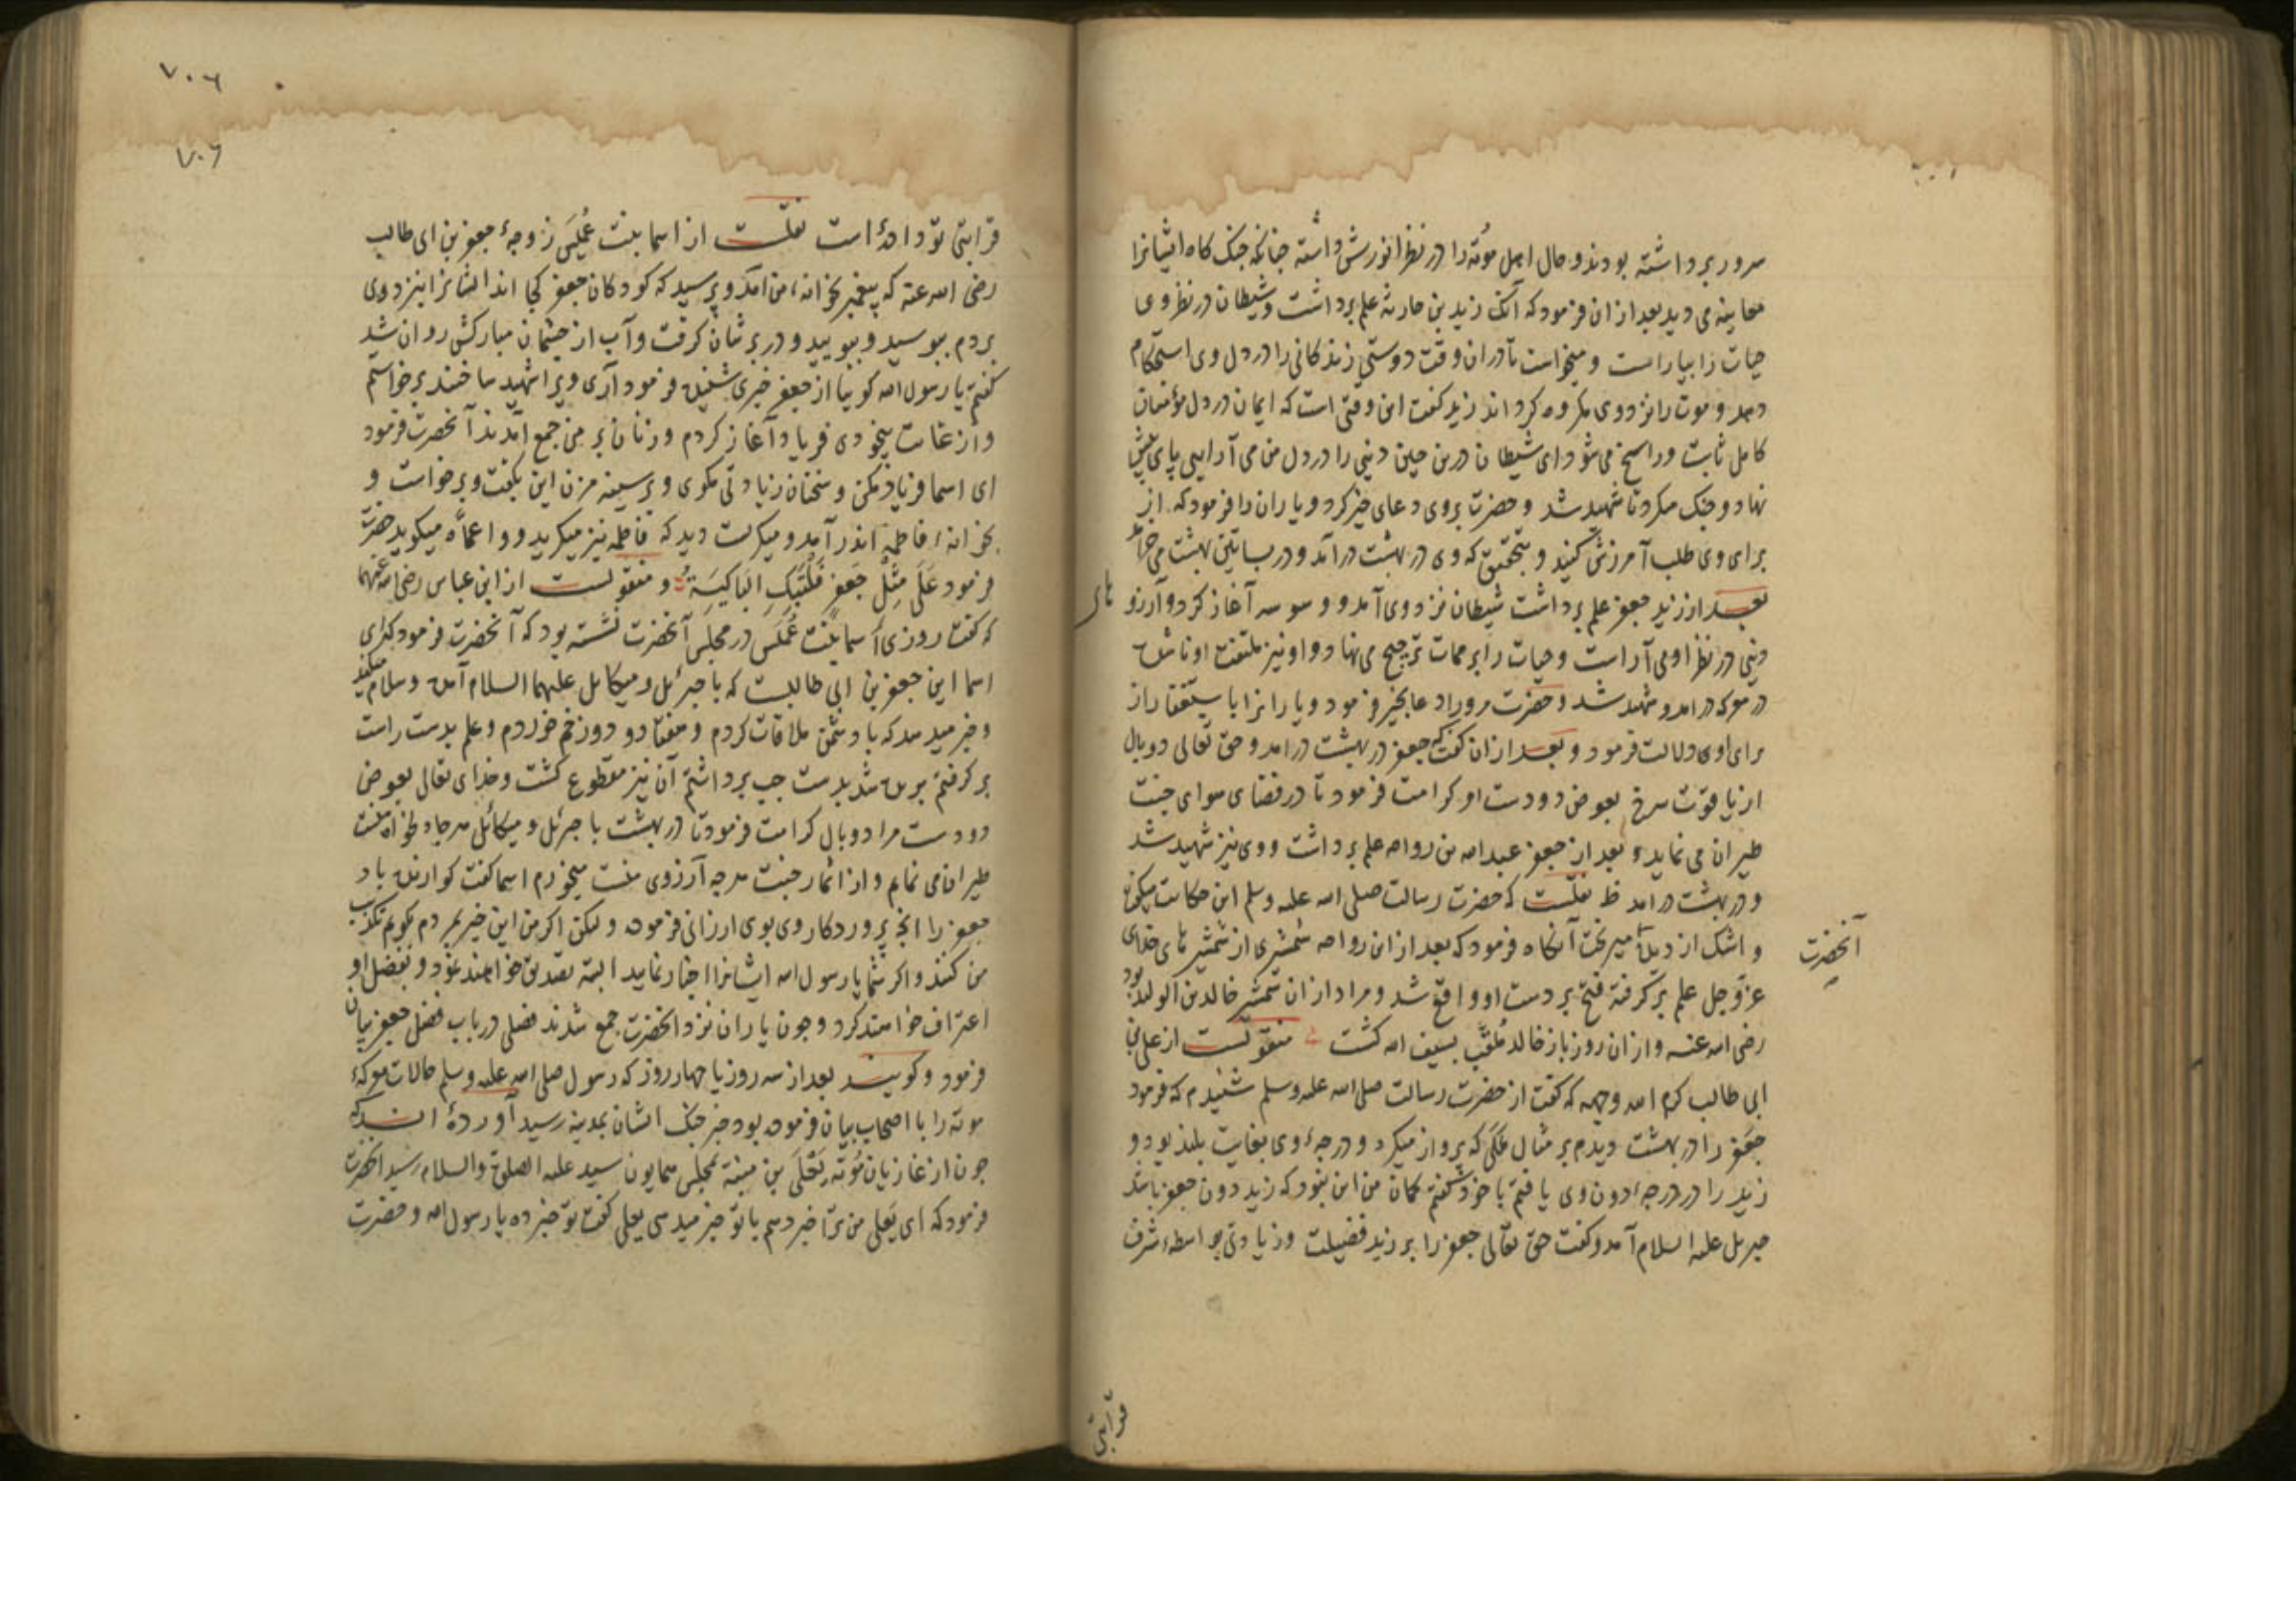 سرور برداشته بودند و حال اهل مُوته را در نظر انورش داشته چنانکه جنک کاه ایشانرا
معاینه می دید بعد ازان فرمود که آنک زید بن حارثه علم برداشت و شیطان در نظر وی
حیات را بیاراست و میخواست تا دران وقت دوستی زندکانی را در دل وی استحکام
دهد و موت را نزد وی مکروه کرداند زید کفت این وقتی است که ایمان در دل مؤمنان
کامل ثابت و راسخ می شود ای شیطان درین حین دنیی را در دل من می آرایی پای پیش
نهاد و جنک میکرد تا شهید شد و حضرت بروی دعای خیر کرد و یاران را فرمود که از
برای وی طلب آمرزش کنید و بتحقیق که وی در بهشت درآمد و در بساتین بهشت می خرامد
بعد از زید جعفر علم برداشت شیطان نزد وی آمد و وسوسه آغاز کرد و آرزو
های
دنیی در نظر او می آراست و حیات را بر ممات ترجیح می نهاد و او نیز ملتفت او ناشده
در معرکه درامد و شهید شد و حضرت مرورا دعا بخیر فرمود و یارانرا باستغفار از
برای او دلالت فرمود و بعد ازان کفت که جعفر در بهشت درامد و حق تعالی دو بال
از یاقوت سرخ بعوض دو دست او کرامت فرمود تا در فضای هوای جنت
طیران می نماید و بعد از جعفر عبد الله بن رواحه علم برداشت و وی نیز شهید شد
و در بهشت درامد نقلست که حضرت رسالت صلی الله علیه وسلم این حکایت میکرد
و اشک از دیده میریخت آنکاه فرمود که بعد از ابن رواحه شمشیری از شمشیر های خدای
آنحضرت
عزّوجل علم برکرفته فتح بر دست او واقع شد و مراد ازان شمشیر خالد بن الولید بود
رضی الله عنه و ازان روز باز خالد ملقّب بسیف الله کشت منقولست از علی بن
ابی طالب کرم الله وجهه که کفت از حضرت رسالت صلی الله علیه وسلم شنیدم که فرمود
جعفر را در بهشت دیدم بر مثال مَلَکی که پرواز میکرد و درجهٔ وی بغایت بلند بود و
زید را در درجهٔ دون وی یافتم با خود کفتم کمان من این نبود که زید دون جعفر باشد
جبریل علیه السلام آمد و کفت حق تعالی جعفر را بر زید فضیلت و زیادتی بواسطهٔ شرف
قرابتی
۷۰۶
۷۰۶
قرابتی تو داده است نقلست از اسما بنت عُمَیس زوجهٔ جعفر بن ابی طالب
رضی الله عنه که پیغمبر بخانهٔ من آمد و پرسید که کودکان جعفر کجا اند ایشانرا نیز دوی
بردم ببوسید و ببویید و در بر شان کرفت و آب از چشمان مبارکش روان شد
کفتم یا رسول الله کوییا از جعفر خبری شنیدهٔ فرمود آری ویرا شهید ساختند برخواستم
و از غایت بیخودی فریاد آغاز کردم و زنان بر من جمع آمدند آنحضرت فرمود
ای اسما فریاد مکن و سخنان زیادتی مکوی و بر سینه مزن این بکفت و برخواست و
بخانهٔ فاطمه اندر آمد و میکریست دید که فاطمه نیز میکرید و واعمّاه میکوید حضرت
فرمود عَلَی مِثلِ جَعفَر فَلتَبکِ البَاکِیَة و منقولست از ابن عباس رضی الله عنهما
که کفت روزی اسما بنت عُمَیس در مجلس آنحضرت نشسته بود که آنحضرت فرمود که ای
اسما این جعفر بن ابی طالبست که با جبرئیل و میکائیل علیهما السلام آمده و سلام میکند
و خبر میدهد که با دشمن ملاقات کردم و هفتاد و دو زخم خوردم و علم بدست راست
برکرفتم بریده شد بدست چپ برداشتم آن نیز مقطوع کشت و خدای تعالی بعوض
دو دست مرا دو بال کرامت فرمود تا در بهشت با جبرئیل و میکائیل هرجا دلخواه منست
طیران می نمایم و از اثمار جنت هرچه آرزوی منست میخورم اسما کفت کوارنده باد
جعفر را انچه پروردکار وی بوی ارزانی فرموده و لیکن اکر من این خبر بمردم بکویم تکذیب
من کنند و اکر شما یا رسول الله ایشانرا اخبار نمایید البته تصدیق خواهند نمود و بفضل او
اعتراف خواهند کرد و چون یاران نزد آنحضرت جمع شدند فصلی در باب فضل جعفر بیان
فرمود و کویند بعد از سه روز یا چهار روز که رسول صلی الله علیه وسلم حالات معرکهٔ
موته را با اصحاب بیان فرموده بود خبر جنک ایشان بمدینه رسید آورده اند که
چون از غازیان مُوته یَعلَی بن منبه بمجلس همایون سید علیه الصلوة والسلام رسید آنحضرت
فرمود که ای یَعلی من ترا خبر دهم یا تو خبر میدهی یعلی کفت تو خبر ده یا رسول الله و حضرت